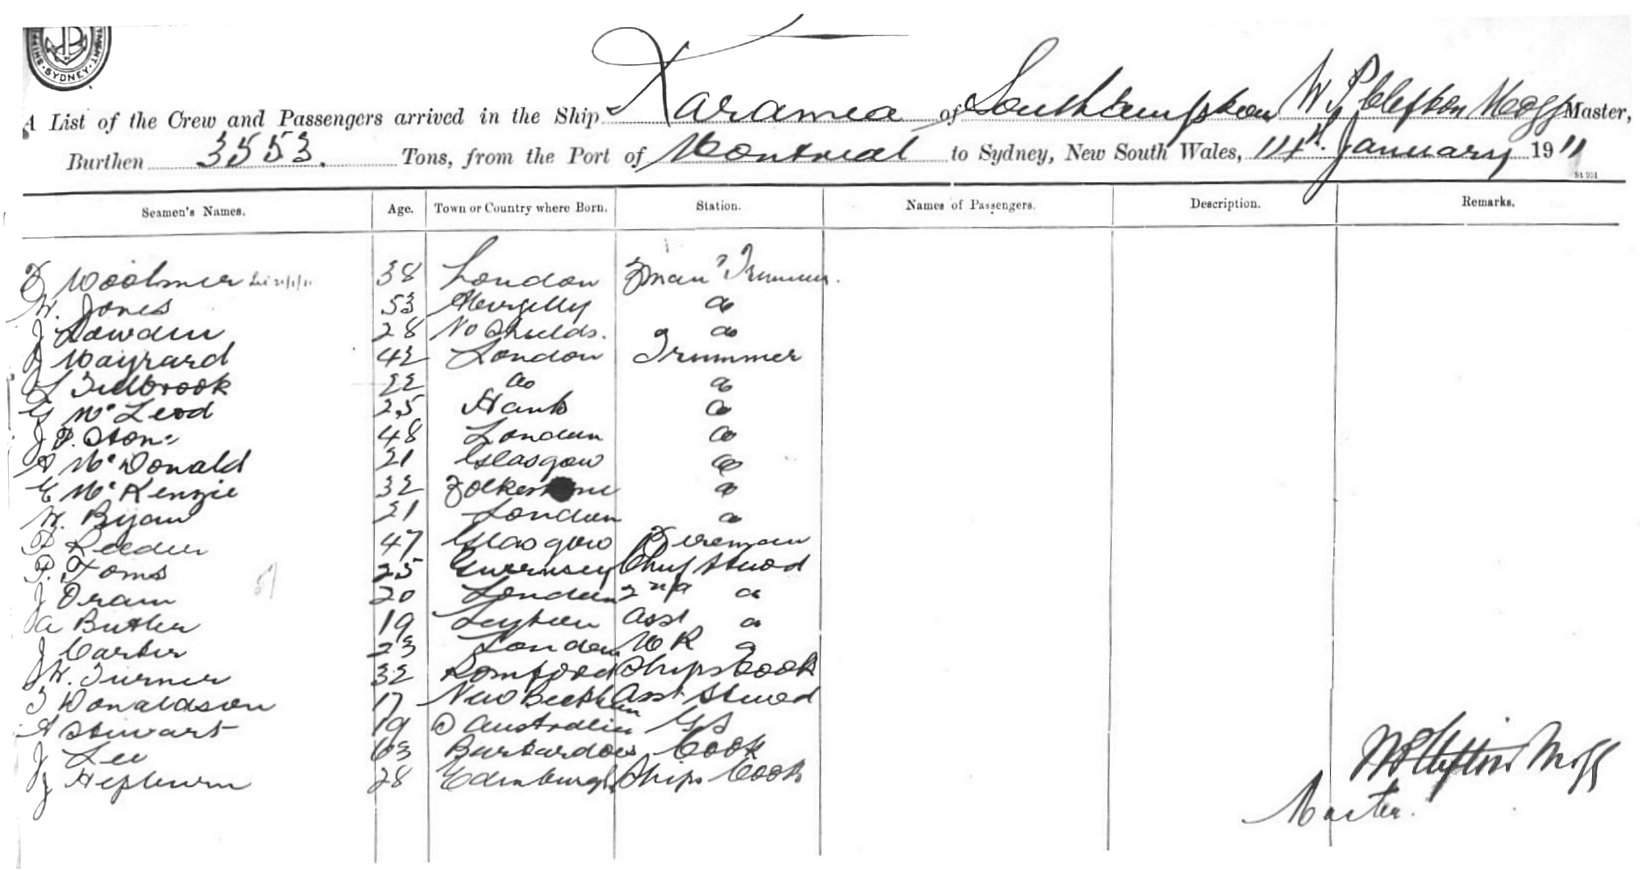 SYDNEY
A List of the Crew and Passengers arrived in the Ship Karamea of Southampton W P Clifton Mogg Master,
Burthen 3553. Tons, from the Port of Montreal to Sydney, New South Wales, 11th January 1911
Seamen's Names. Age. Town or Country where Born. Station. Names of Passengers. Description. Remarks.
Woolmer 38 London Fman & Trimmer.
W. Jones 53 Abergelly do
J Lowden 28 No Shields. do
J Maynard 42 London Trimmer
L Tidbrook 22 do do
G McLeod 25 Hants do
J P. Stone 48 London do
A McDonald 21 Glasgow do
E McKenzie 32 Folkestone do
W. Byam 21 London do
Reeder 47 Glasgow Fireman
P. Toms 25 Guernsey Chief Stwod
J Oram 20 London 2nd do
A Butler 19 Leyton Asst do
J Carter 23 London M R do
J W. Turner 32 Romford Ships Cook
T Donaldson 17 New Beckham Asst Stwod
A Stewart 19 S Australia G S
J Lee 63 Barbardoes Cook
J Hepburn 28 Edinburgh Ships Cook
W P Clifton Mogg
Master.